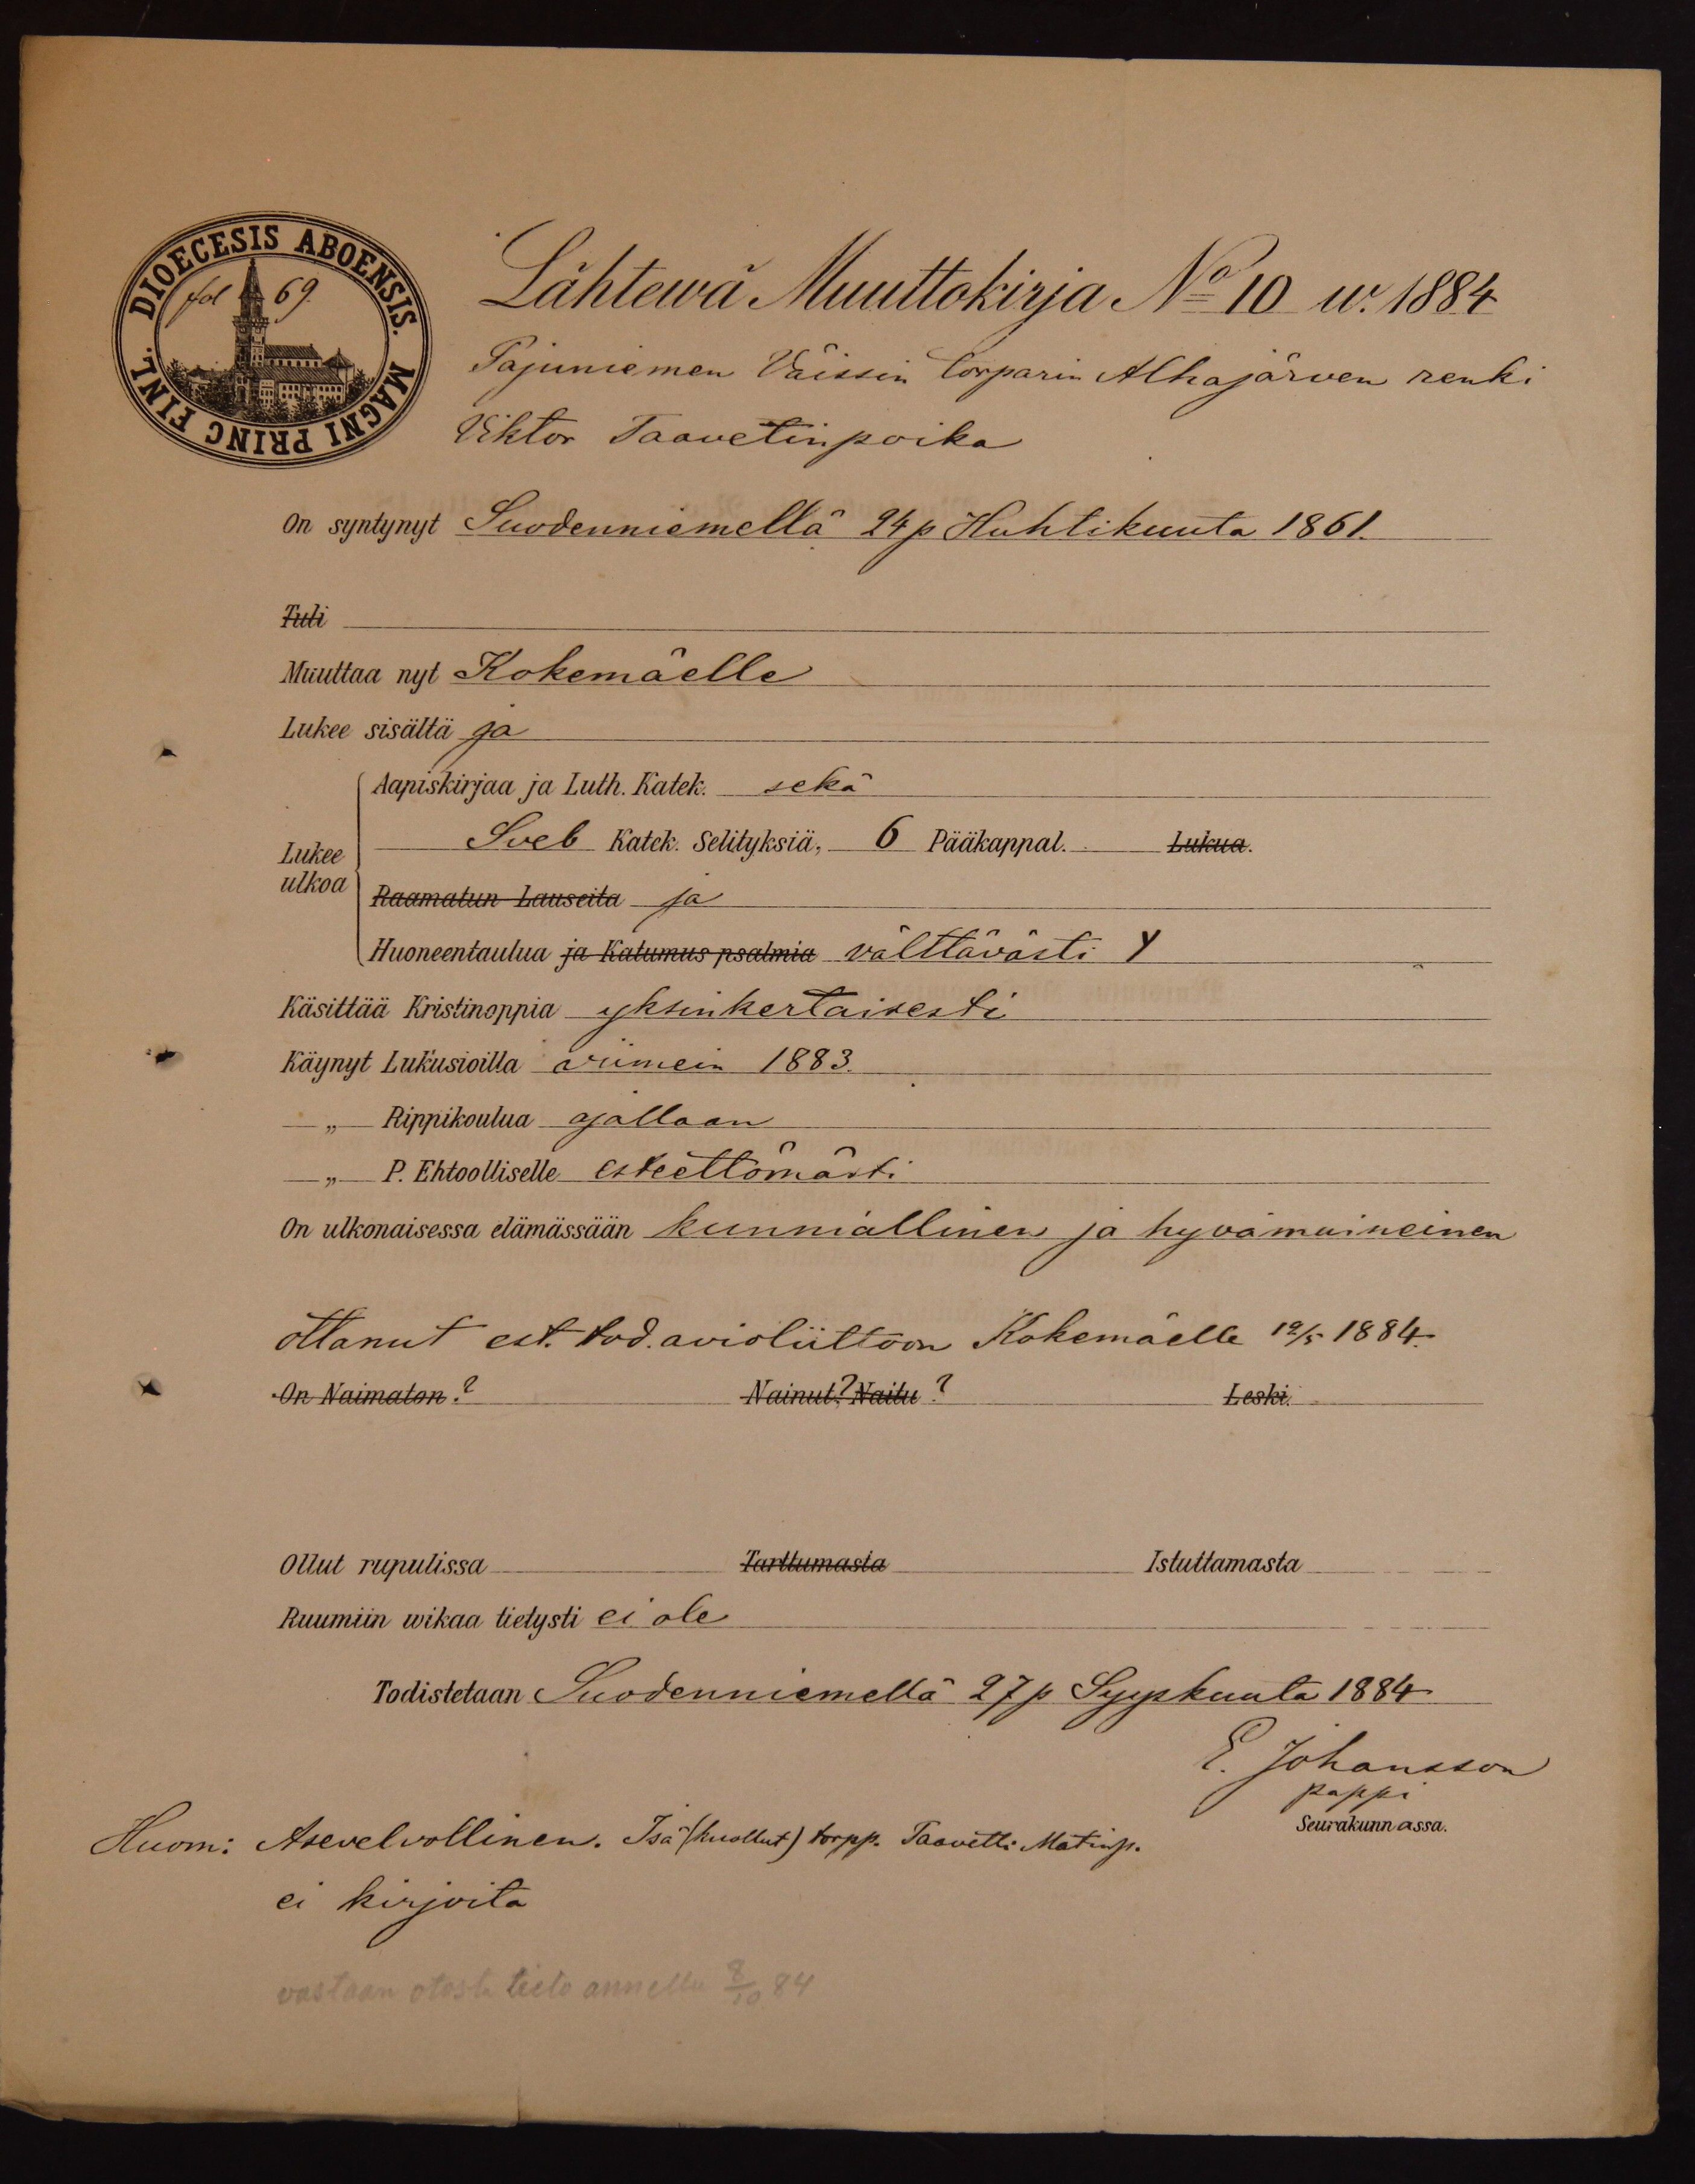 DIOECESIS ABOENSIS. MAGNI PRINC FINL.
fol 69.
Lähtewä Muuttokirja No 10 w. 1884
Pajuniemen Väissin torparin Alhajärven renki
Viktor Taavetinpoika
On syntynyt Suodenniemellä 24 p Huhtikuuta 1861.
Tuli
Muuttaa nyt Kokemäelle
Lukee sisältä ja
Aapiskirjaa ja Luth. Katek. sekä
Lukee ulkoa
Sveb Katek. Selityksiä, 6 Pääkappal. Lukua.
Raamatun Lauseita ja
Huoneentaulua ja Katumus psalmia välttävästi Y
Käsittää Kristinoppia yksinkertaisesti
Käynyt Lukusioilla viimein 1883.
„ Rippikoulua ajallaan
„ P. Ehtoolliselle esteettömästi
On ulkonaisessa elämässään kunniallinen ja hyvämaineinen
ottanut est. tod. avioliittoon Kokemäelle 12/5 1884.
On Naimaton? Nainut? Naitu? Leski.
Ollut rupulissa Tarttumasta Istuttamasta
Ruumiin wikaa tietysti ei ole
Todistetaan Suodenniemellä 27 p Syyskuuta 1884
E. Johansson
pappi
Seurakunnassa.
Huom: Asevelvollinen. Isä (kuollut) torpp. Taavetti Matinp.
ei kirjoita
vastaan otosta tieto annettu 8/10 84